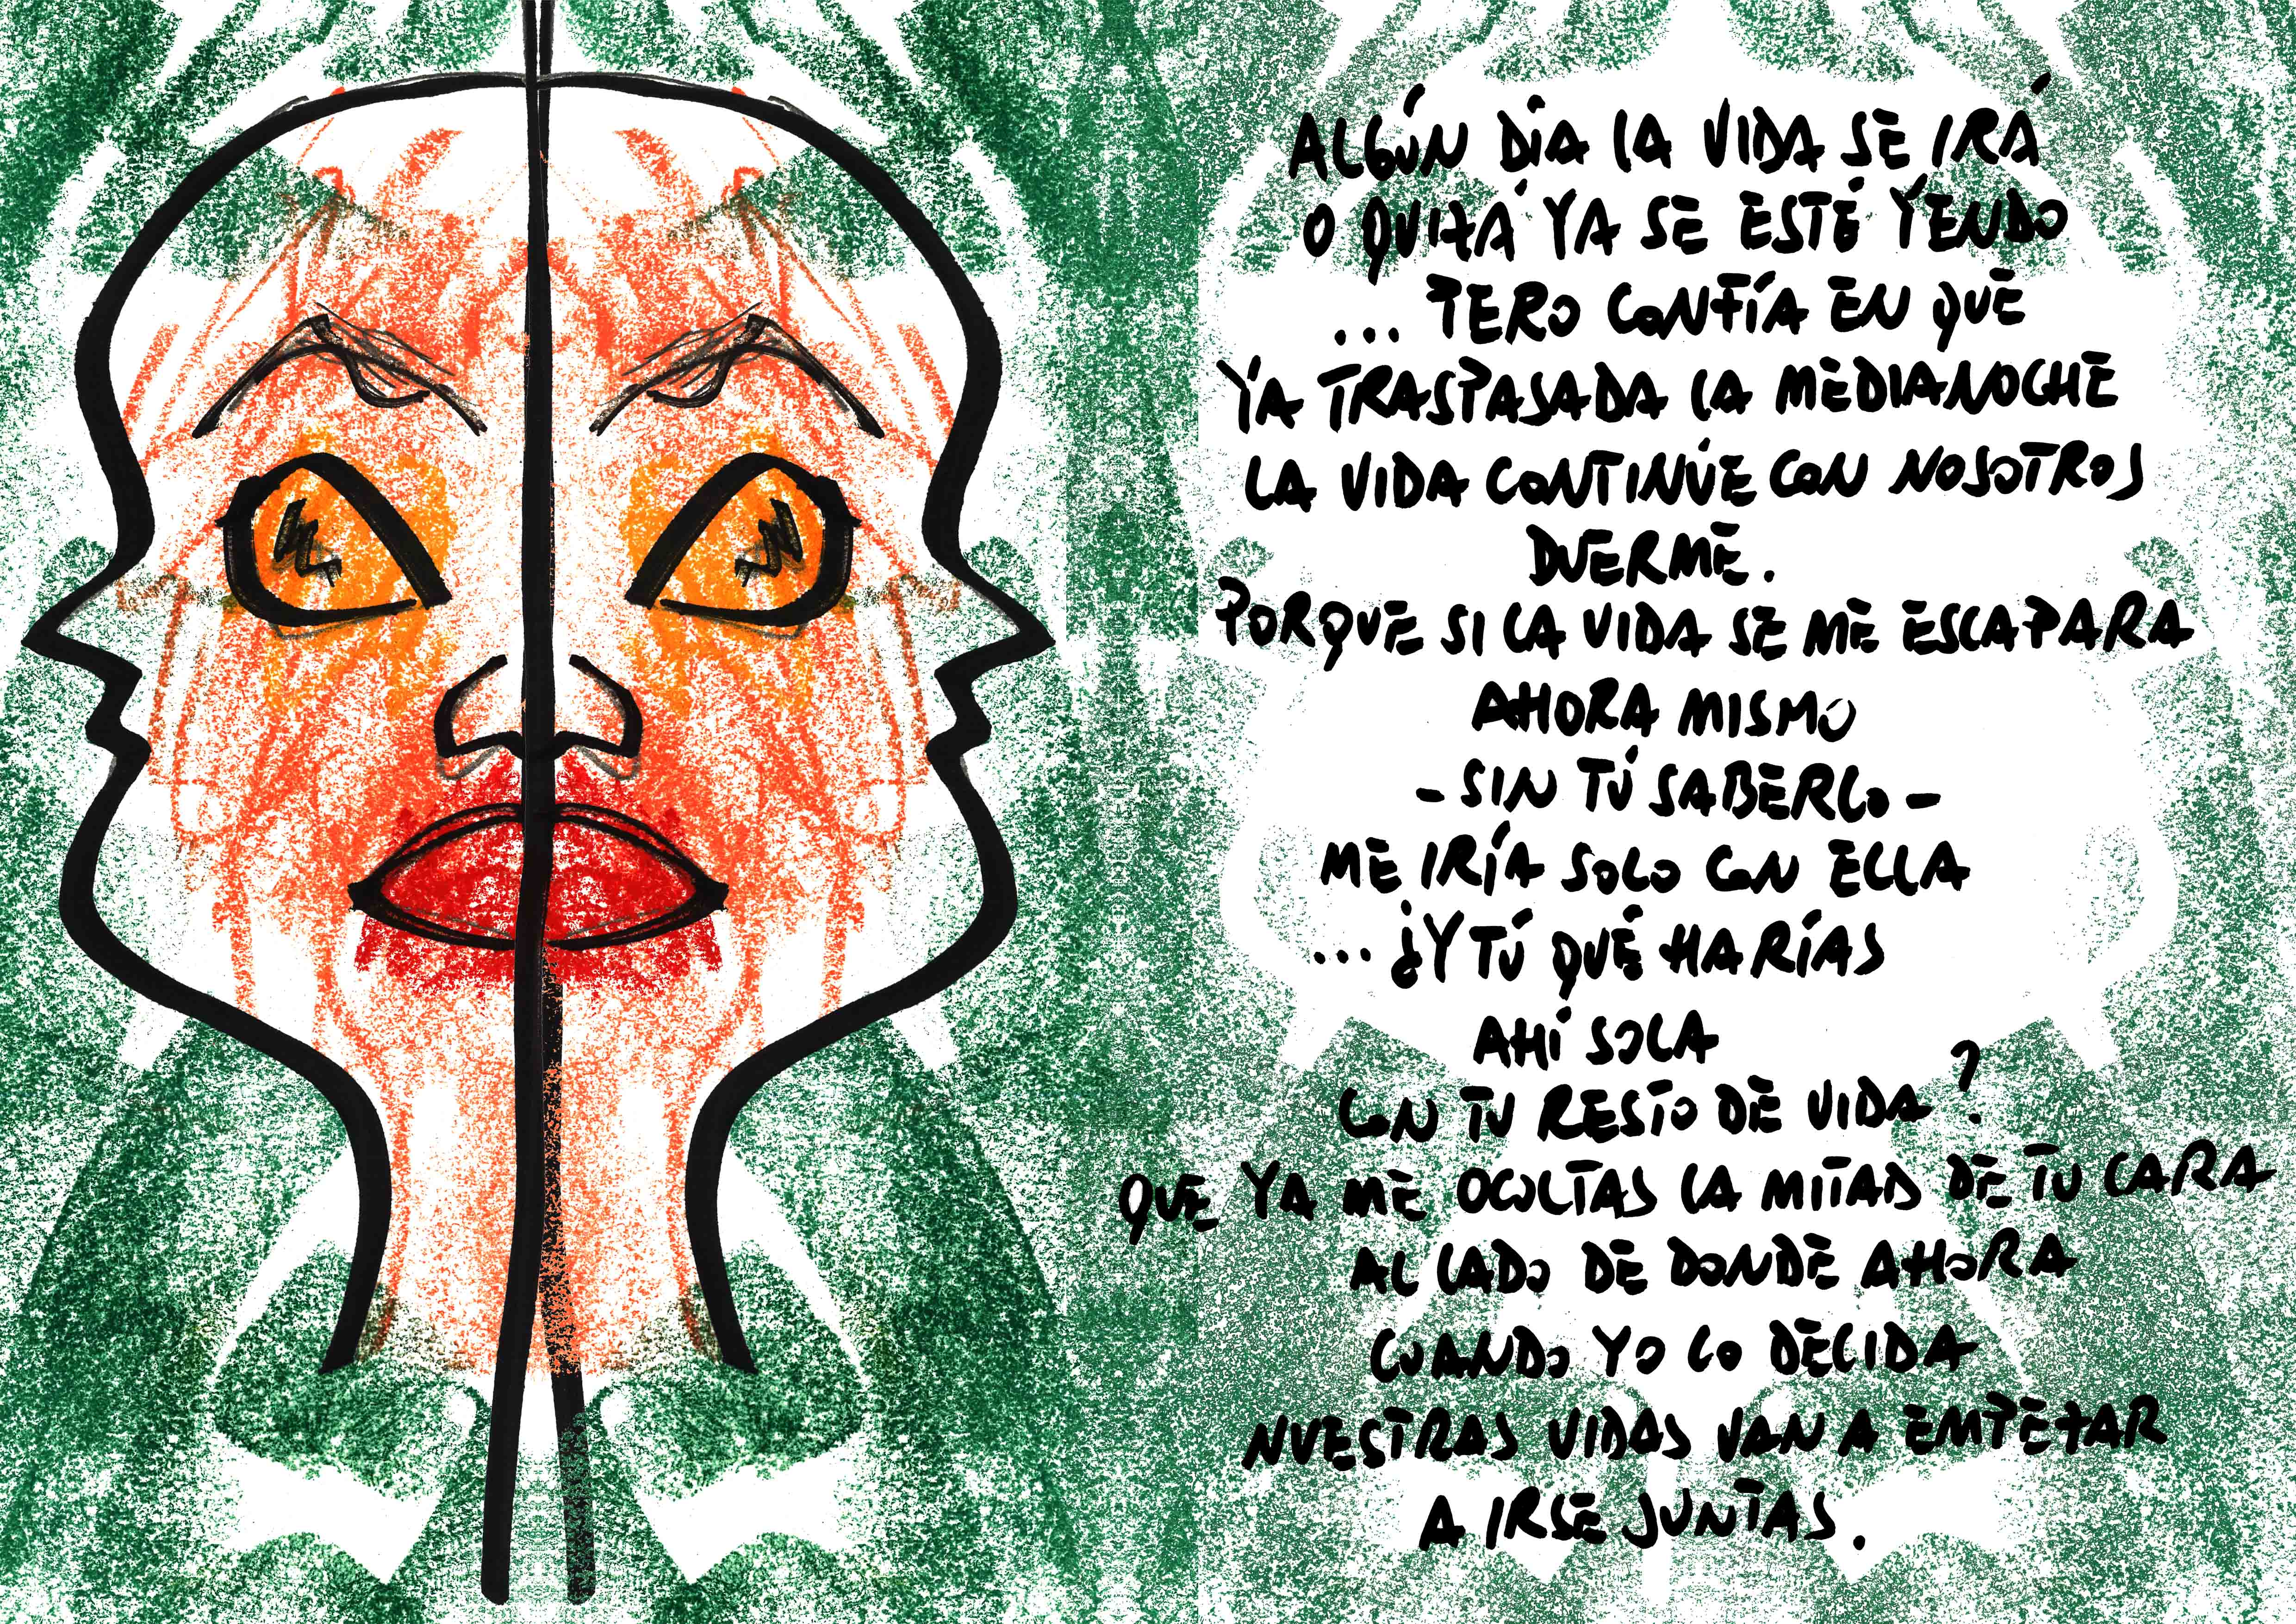 ALGÚN DÍA LA VIDA SE IRÁ
O QUIZÁ YA SE ESTÉ YENDO
... PERO CONFÍA EN QUE
YA TRASPASADA LA MEDIANOCHE
LA VIDA CONTINÚE CON NOSOTROS
DUERME.
PORQUE SI LA VIDA SE ME ESCAPARA
AHORA MISMO
- SIN TÚ SABERLO -
ME IRÍA SOLO CON ELLA
... ¿Y TÚ QUÉ HARÍAS
AHÍ SOLA
CON TU RESTO DE VIDA?
QUE YA ME OCULTAS LA MITAD DE TU CARA
AL LADO DE DONDE AHORA
CUANDO YO LO DECIDA
NUESTRAS VIDAS VAN A EMPEZAR
A IRSE JUNTAS.